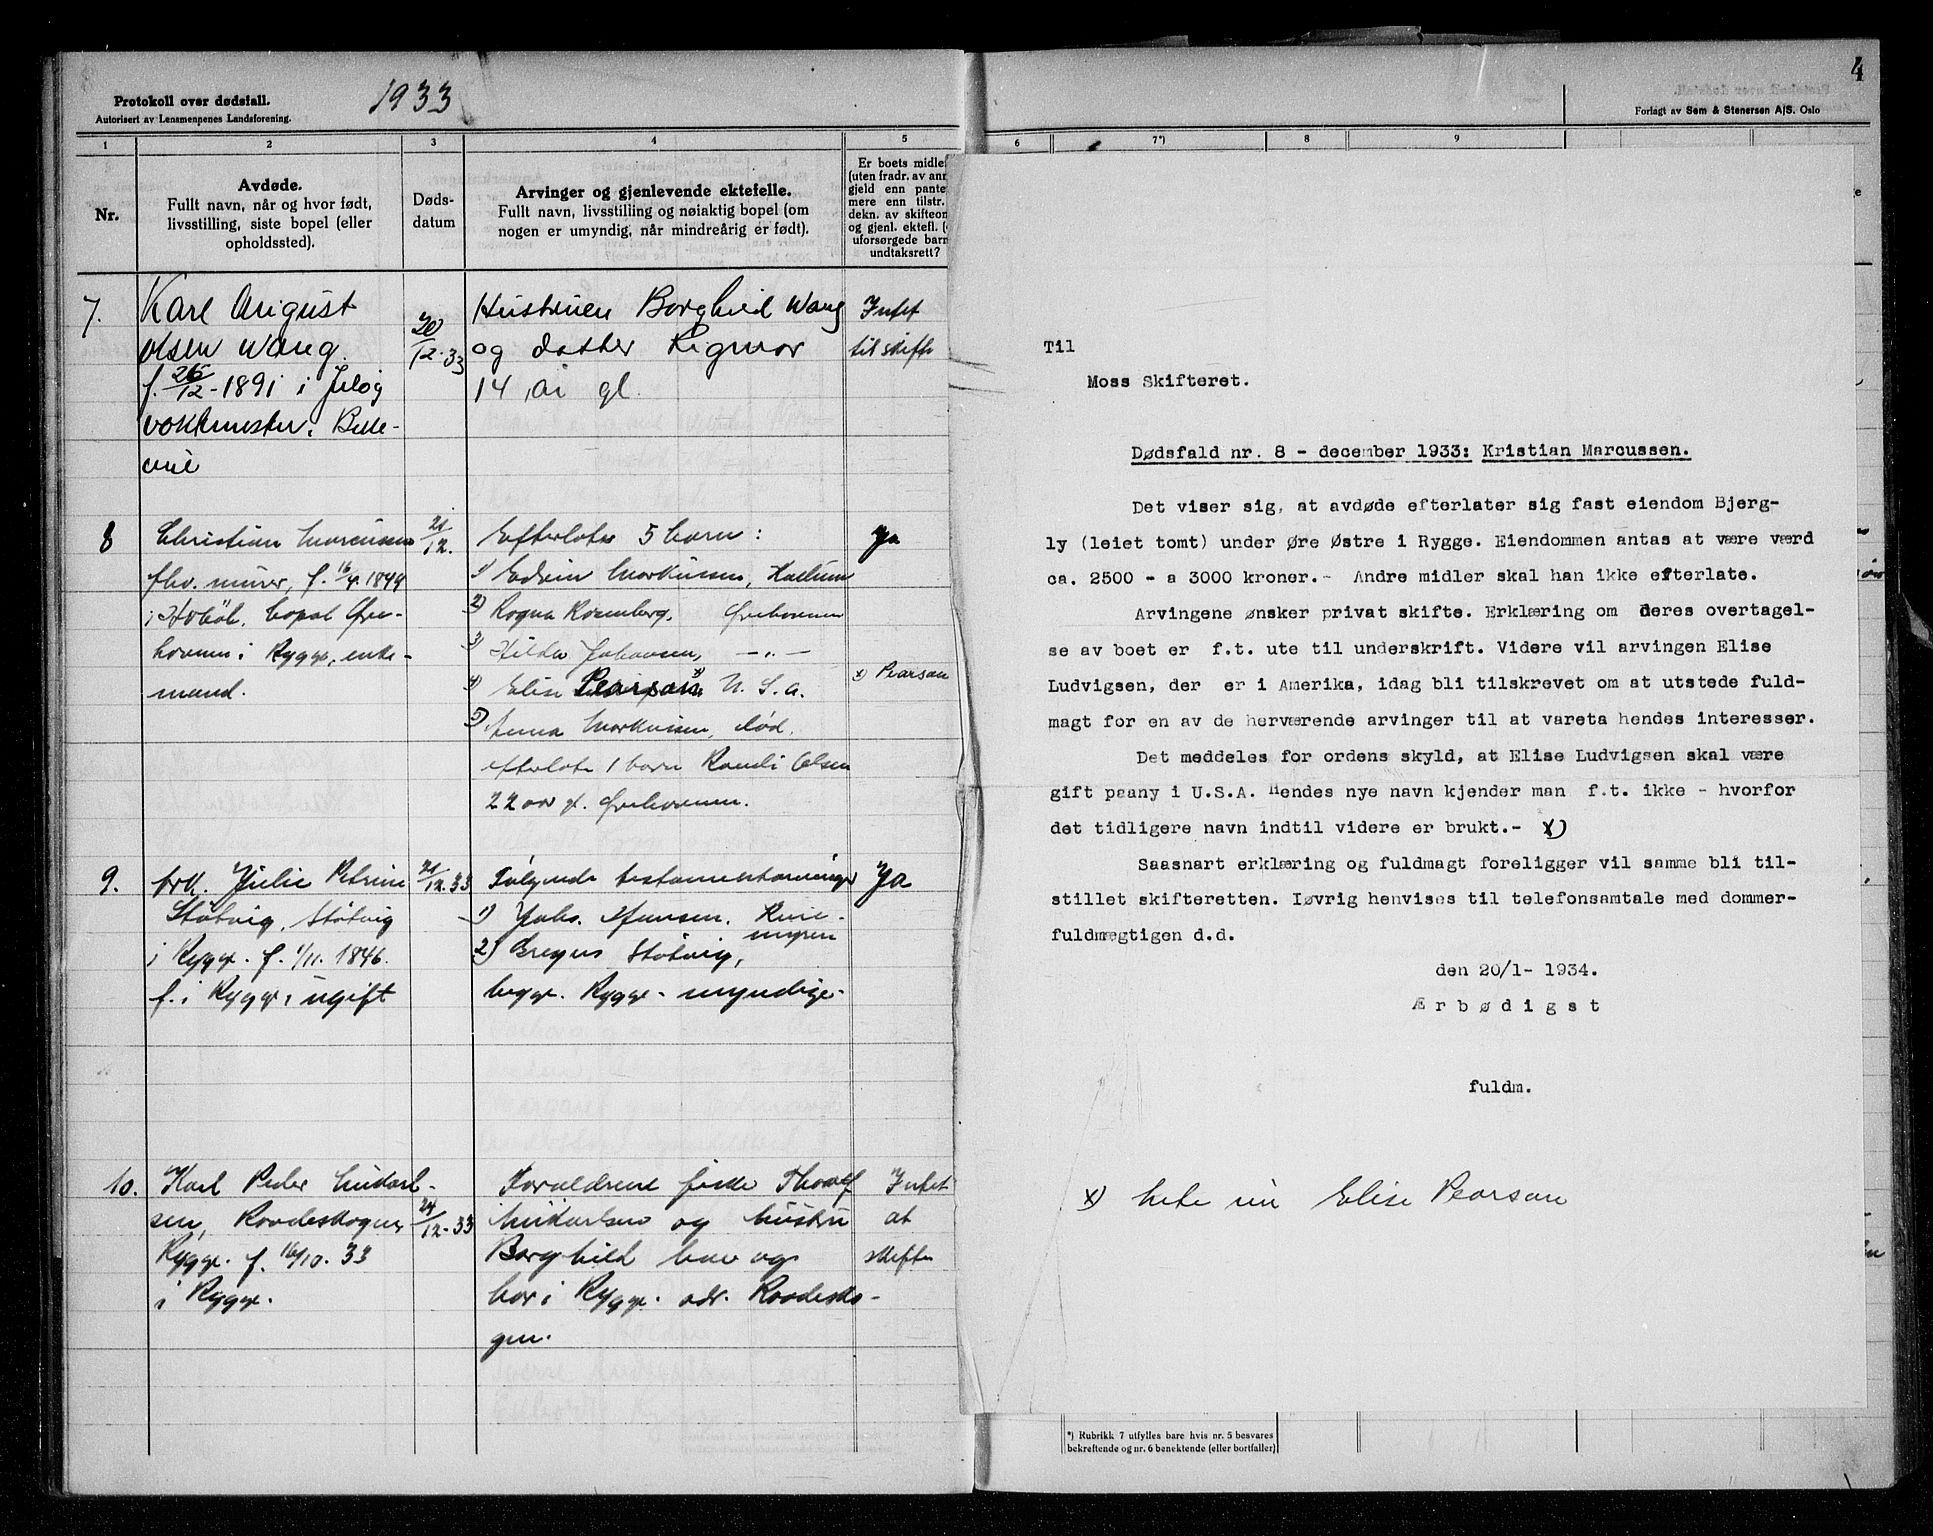 Protokoll over dødsfall.
Autorisert av Lensmennenes Landsforening.
1933
1 2 3 4 5
Nr.
Avdøde.
Fullt navn, når og hvor født,
livsstilling, siste bopel (eller
opholdssted).
Døds-
datum
Arvinger og gjenlevende ektefelle.
Fullt navn, livsstilling og nøiaktig bopel (om
nogen er umyndig, når mindreårig er født).
Er boets midle
(uten fradr. av ann
gjeld enn pante
mere enn tilstr.
dekn. av skifteom
og gjenl. ektefl. (
uforsørgede barn
undtaksrett?
7.
Karl August
Olsen Wang.
f. 26/12-1891 i Jeløy
vaktmester.
20/12-33
Hustruen Borghild Wang
og datter Rigmor
14 år gl.
Intet
til skifte
8
Christian Marcussen
fhv. murer, f. 16/4. 1849
i Hobøl, bopel Øre-
havnen i Rygge, enke-
mand.
21/12.
Efterlater 5 barn:
1) Edvin Markussen,
2) Ragna Rosenberg, Ørehavnen
3) Hilda Johansen, -"-
4) Elise Pearson x) U. S. A.
5) Anna Markussen, død.
efterlater 1 barn Randi Olsen
22 aar gl. Ørehavnen.
Ja
x) Pearson
9.
frk. Julie Petrine
Støtvig, Støtvig
i Rygge. f. 1/11. 1846.
f. i Rygge, ugift
21/12.33
Følgende testamentarvinger
1) Johs. Hansen,
2) Gregus Støtvig,
begge Rygge - myndige.
Ja
10.
Karl Peder Mikael-
sen, Raadeskogen,
Rygge. f. 16/10. 33
i Rygge.
24/12-33
Forældrene Thoralf
Mikaelsen og hustru
Borghild
bor i Rygge. adr. Raadesko-
gen.
Intet
at
skifte
4
Forlagt av Sem & Stenersen A/S. Oslo
6 7*) 8 9
Til
Moss Skifteret.
Dødsfald nr. 8 - december 1933: Kristian Marcussen.
Det viser sig, at avdøde efterlater sig fast eiendom Bjerg-
ly (leiet tomt) under Øre Østre i Rygge. Eiendommen antas at være værd
ca. 2500 - a 3000 kroner.- Andre midler skal han ikke efterlate.
Arvingene ønsker privat skifte. Erklæring om deres overtagel-
se av boet er f.t. ute til underskrift. Videre vil arvingen Elise
Ludvigsen, der er i Amerika, idag bli tilskrevet om at utstede fuld-
magt for en av de herværende arvinger til at vareta hendes interesser.
Det meddeles for ordens skyld, at Elise Ludvigsen skal være
gift paany i U.S.A. Hendes nye navn kjender man f.t. ikke - hvorfor
det tidligere navn indtil videre er brukt.- x)
Saasnart erklæring og fuldmagt foreligger vil samme bli til-
stillet skifteretten. Iøvrig henvises til telefonsamtale med dommer-
fuldmægtigen d.d.
den 20/1- 1934.
Ærbødigst
fuldm.
x) hete nu Elise Pearson
*) Rubrikk 7 utfylles bare hvis nr. 5 besvares
bekreftende og nr. 6 benektende (eller bortfaller)